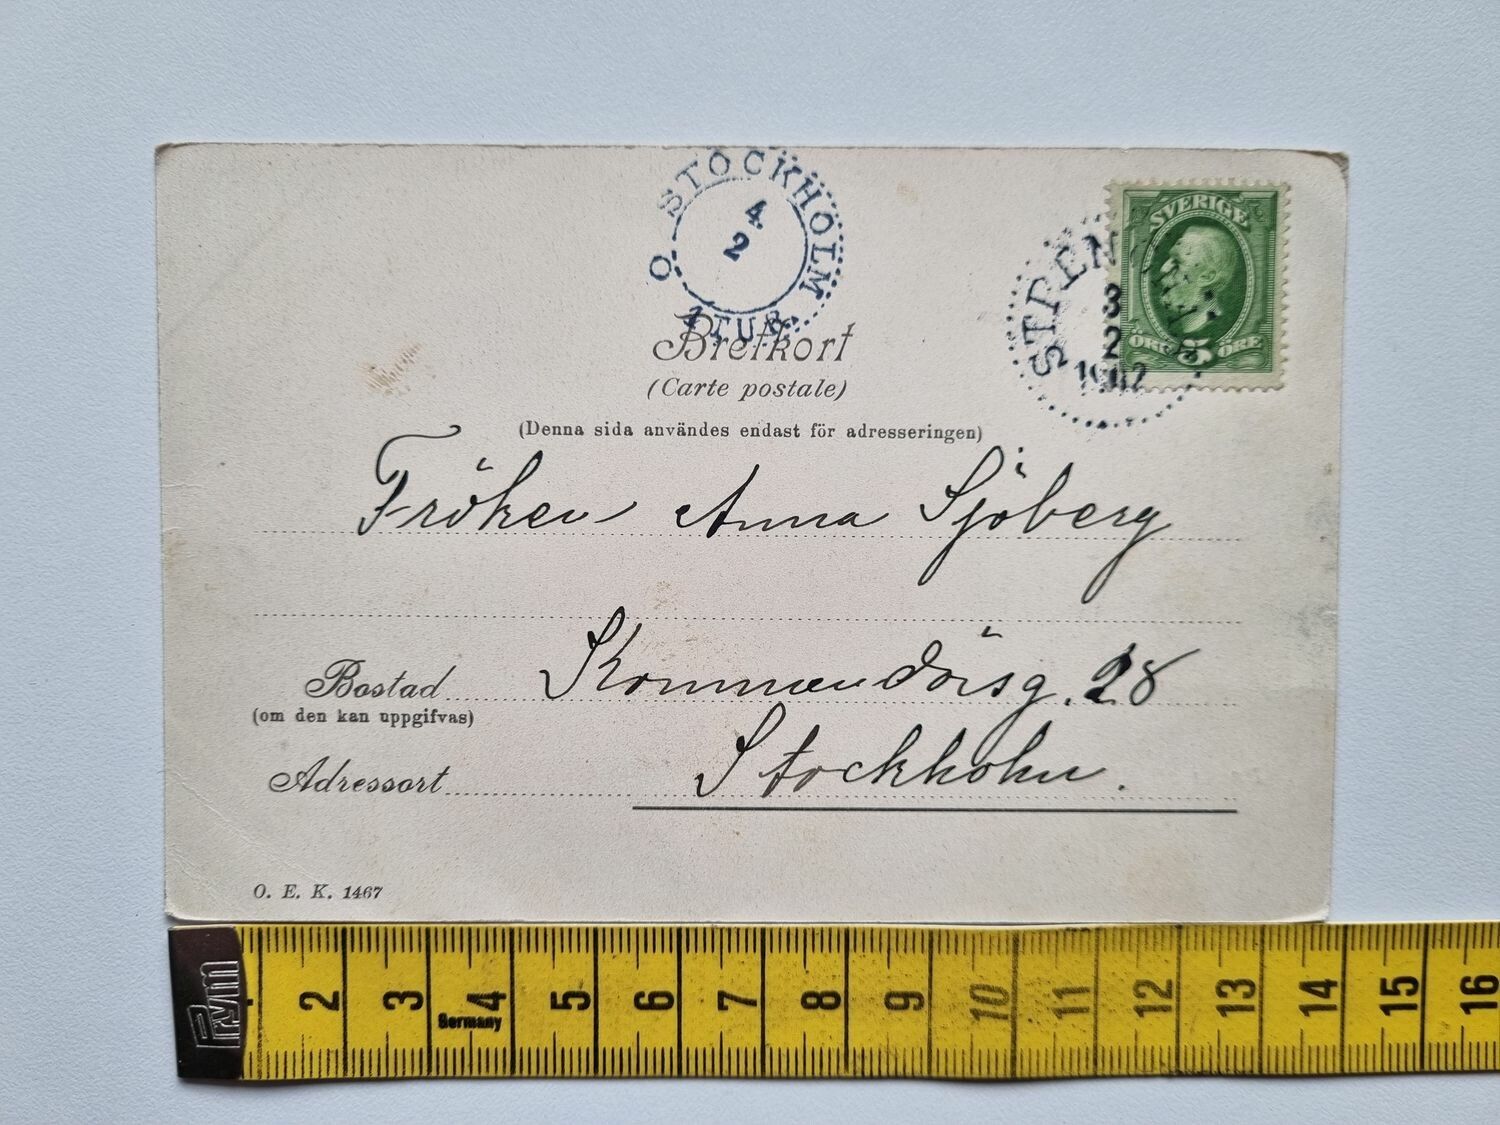 STOCKHOLM
4
2
O
1 TUR.
SVERIGE
ÖRE 5 ÖRE
3
2
1902
Brefkort
(Carte postale)
(Denna sida användes endast för adresseringen)
Fröken Anna Sjöberg
Bostad Kommendörsg. 28
(om den kan uppgifvas)
Adressort Stockholm.
O. E. K. 1467
Prym
2 3 4 5 6 7 8 9 10 11 12 13 14 15 16
Germany